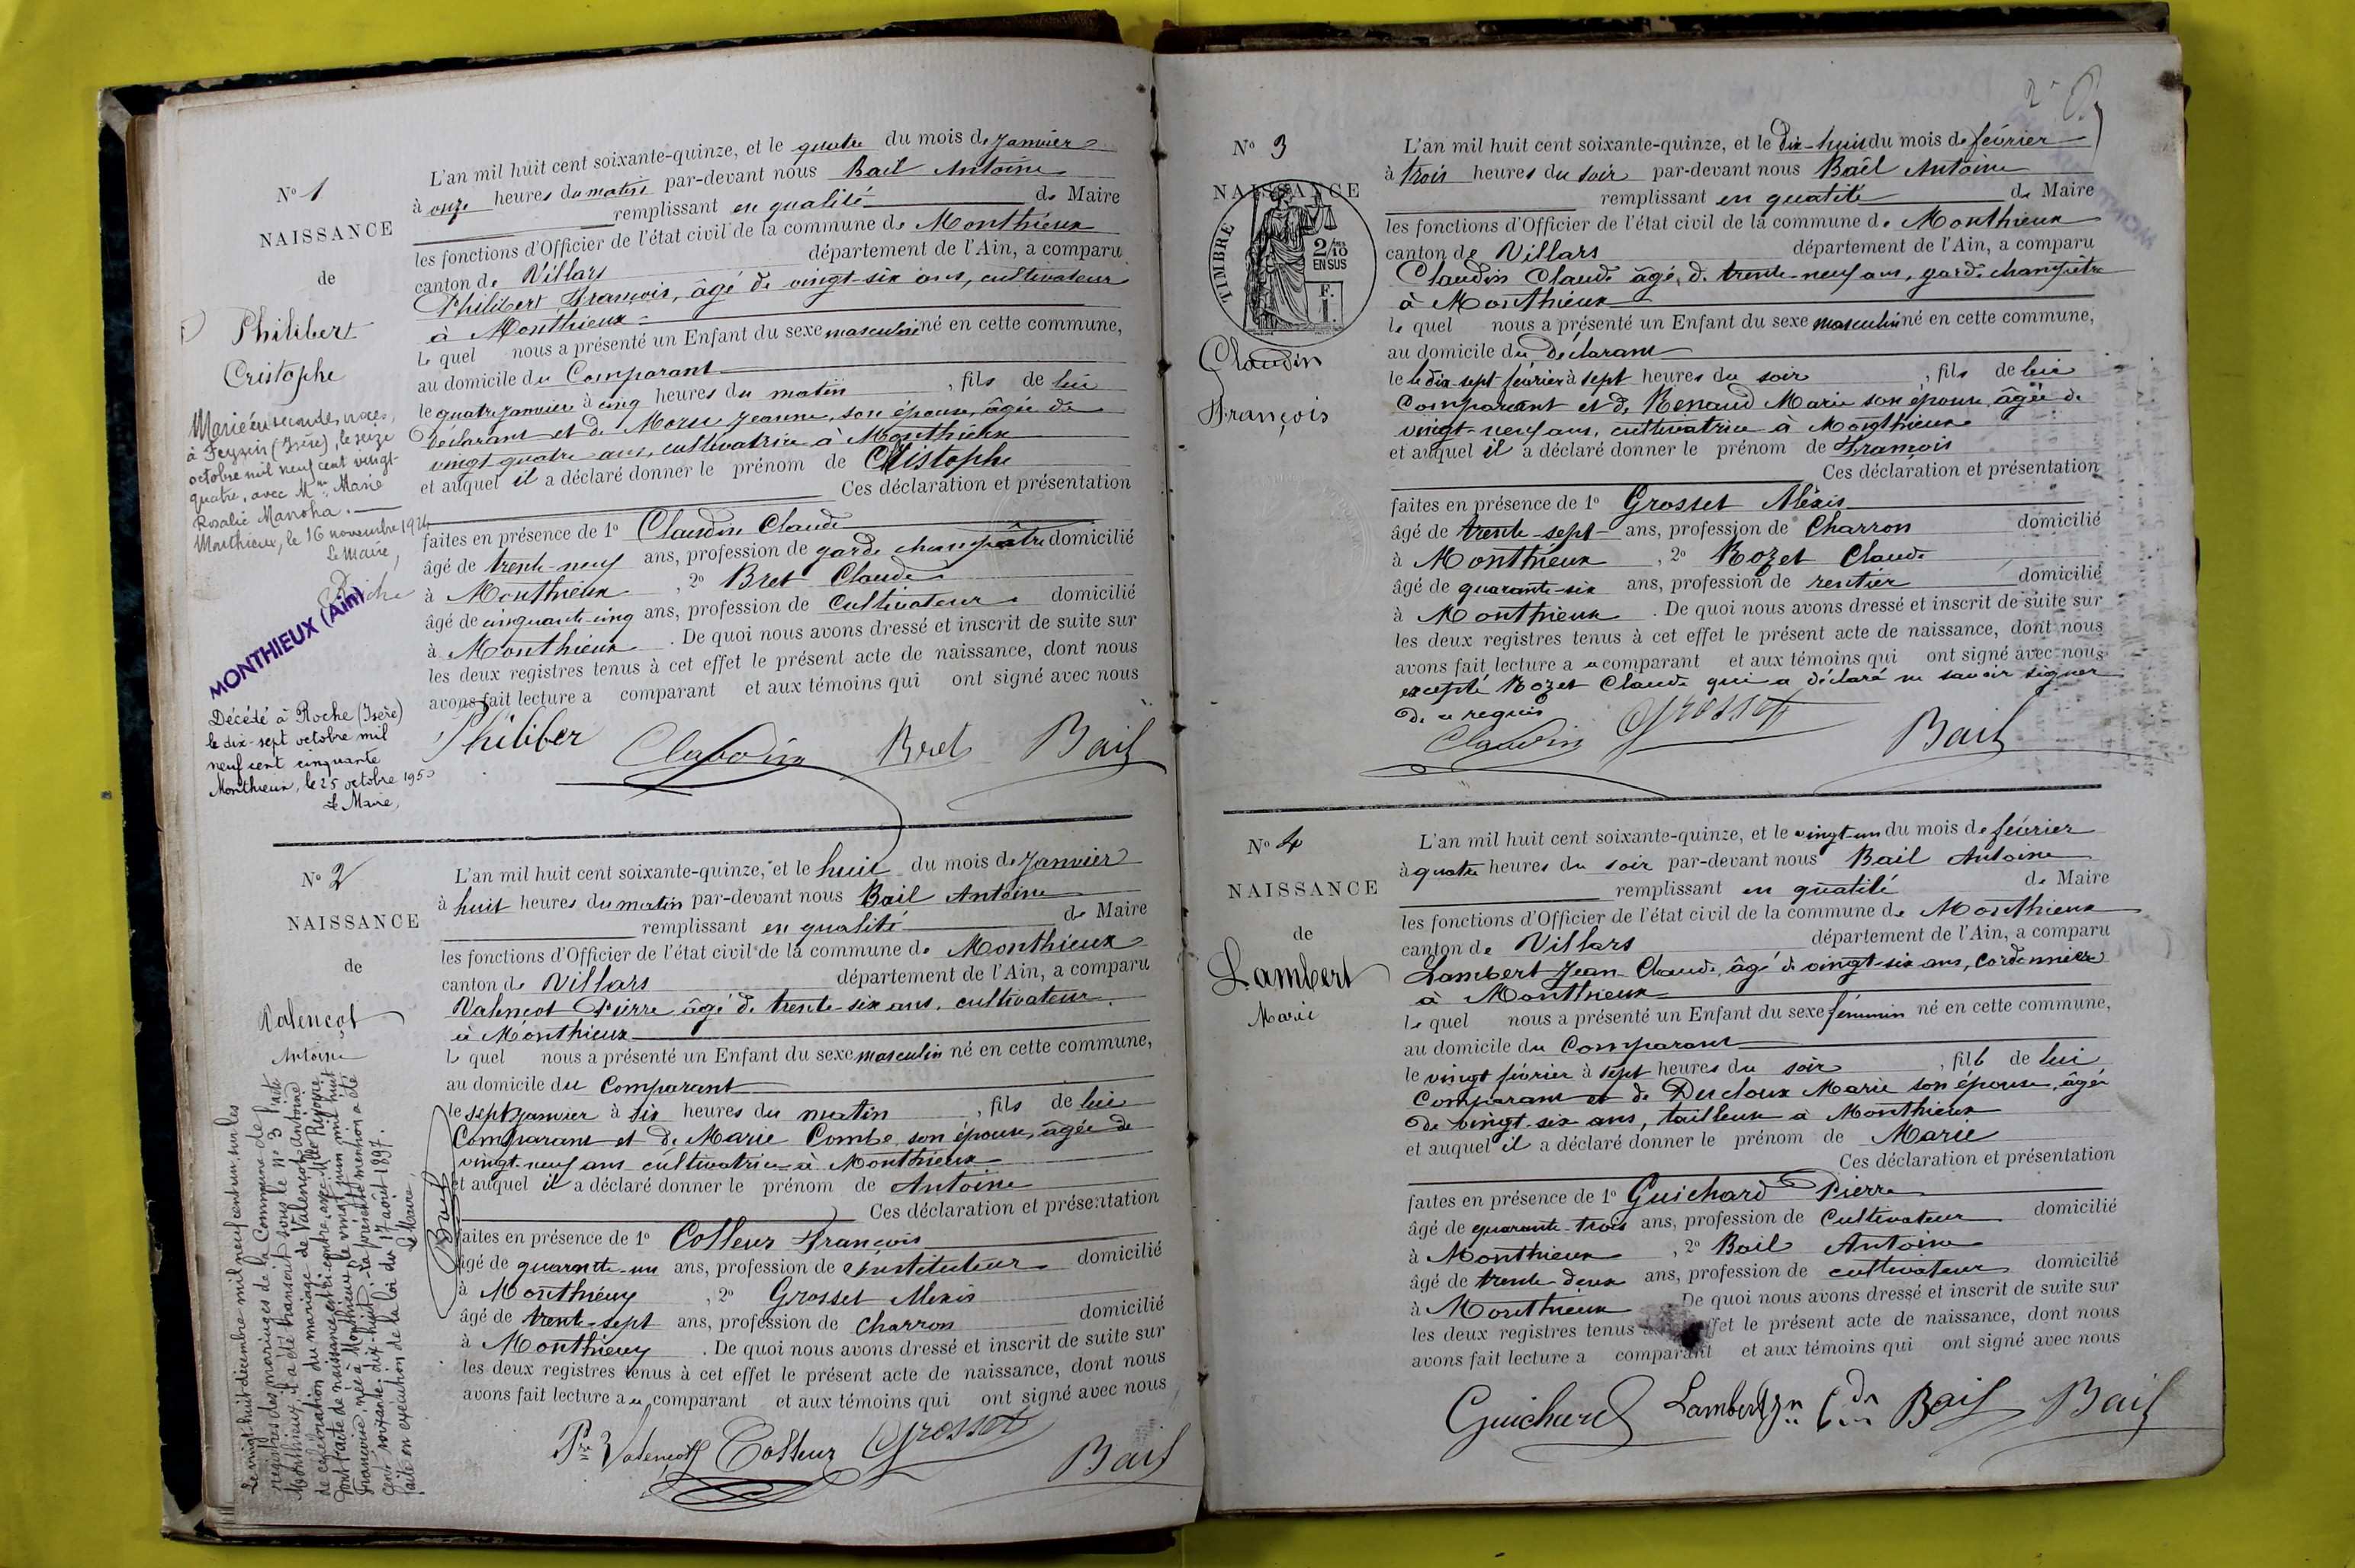 N° 1
NAISSANCE
de
Philibert
Cristophe
Marié en secondes noces,
à Feyzin (Isère), le seize
octobre mil neuf cent vingt-
quatre, avec Mme Marie
Rosalie Manoha.
Monthieux, le 16 novembre 1924
Le Maire,
MONTHIEUX (Ain)
Décédé à Roche (Isère)
le dix-sept octobre mil
neuf cent cinquante
Monthieux, le 25 octobre 1950
Le Maire,
L'an mil huit cent soixante-quinze, et le quatre du mois de Janvier
à onze heures du matin par-devant nous Bail Antoine
remplissant en qualité de Maire
les fonctions d'Officier de l'état civil de la commune de Monthieux
canton de Villars département de l'Ain, a comparu
Philibert François, âgé de vingt-six ans, cultivateur
à Monthieux
le quel nous a présenté un Enfant du sexe masculin né en cette commune,
au domicile du Comparant
le quatre janvier à cinq heures du matin, fils de lui
déclarant et de Moru Jeanne, son épouse, âgée de
vingt quatre ans, cultivatrice à Monthieux
et auquel il a déclaré donner le prénom de Christophe
Ces déclaration et présentation
faites en présence de 1° Claudin Claude
âgé de trente-neuf ans, profession de garde champêtre domicilié
à Monthieux, 2° Bret Claude
âgé de cinquante-cinq ans, profession de Cultivateur domicilié
à Monthieux. De quoi nous avons dressé et inscrit de suite sur
les deux registres tenus à cet effet le présent acte de naissance, dont nous
avons fait lecture a comparant et aux témoins qui ont signé avec nous
Philiber Claudin Bret Bail
N° 2
NAISSANCE
de
Valençot
Antoine
Le vingt huit décembre mil neuf cent un, sur les
registres des mariages de la Commune de
Monthieux, il a été transcrit sous le n° 3 l'acte
de célébration du mariage de Valençot Antoine
dont l'acte de naissance est ci-contre, avec Melle Rigollet
Françoise, née à Monthieux, le vingt juin mil huit
cent soixante-dix-huit. La présente mention a été
faite en exécution de la loi du 17 août 1897.
Le Maire,
Bail
L'an mil huit cent soixante-quinze, et le huit du mois de Janvier
à huit heures du matin par-devant nous Bail Antoine
remplissant en qualité de Maire
les fonctions d'Officier de l'état civil de la commune de Monthieux
canton de Villars département de l'Ain, a comparu
Valençot Pierre âgé de trente-six ans, cultivateur
à Monthieux
le quel nous a présenté un Enfant du sexe masculin né en cette commune,
au domicile du Comparant
le sept janvier à six heures du matin, fils de lui
Comparant et de Marie Combe son épouse, âgée de
vingt-neuf ans cultivatrice à Monthieux
et auquel il a déclaré donner le prénom de Antoine
Ces déclaration et présentation
faites en présence de 1° Colleur François
âgé de quarante-un ans, profession de Instituteur domicilié
à Monthieux, 2° Grosset Alexis
âgé de trente-sept ans, profession de Charron domicilié
à Monthieux. De quoi nous avons dressé et inscrit de suite sur
les deux registres tenus à cet effet le présent acte de naissance, dont nous
avons fait lecture au comparant et aux témoins qui ont signé avec nous
Pre Valençot Colleur Grosset Bail
2
N° 3
NAISSANCE
TIMBRE
2/10
EN SUS
F.
1.
Claudin
François
L'an mil huit cent soixante-quinze, et le dix-huit du mois de février
à trois heures du soir par-devant nous Bail Antoine
remplissant en qualité de Maire
les fonctions d'Officier de l'état civil de la commune de Monthieux
canton de Villars département de l'Ain, a comparu
Claudin Claude âgé de trente-neuf ans, garde champêtre
à Monthieux
le quel nous a présenté un Enfant du sexe masculin né en cette commune,
au domicile du déclarant
le le dix-sept février à sept heures du soir, fils de lui
Comparant et de Renaud Marie son épouse âgée de
vingt-neuf ans, cultivatrice à Monthieux
et auquel il a déclaré donner le prénom de François
Ces déclaration et présentation
faites en présence de 1° Grosset Alexis
âgé de trente-sept ans, profession de Charron domicilié
à Monthieux, 2° Rozet Claude
âgé de quarante-six ans, profession de rentier domicilié
à Monthieux. De quoi nous avons dressé et inscrit de suite sur
les deux registres tenus à cet effet le présent acte de naissance, dont nous
avons fait lecture a u comparant et aux témoins qui ont signé avec nous
excepté Rozet Claude qui a déclaré ne savoir signer
de ce requis
Claudin Grosset Bail
N° 4
NAISSANCE
de
Lambert
Marie
L'an mil huit cent soixante-quinze, et le vingt-un du mois de février
à quatre heures du soir par-devant nous Bail Antoine
remplissant en qualité de Maire
les fonctions d'Officier de l'état civil de la commune de Monthieux
canton de Villars département de l'Ain, a comparu
Lambert Jean Claude, âgé de vingt-six ans, cordonnier
à Monthieux
le quel nous a présenté un Enfant du sexe féminin né en cette commune,
au domicile du Comparant
le vingt février à sept heures du soir, fille de lui
Comparant et de Ducloux Marie son épouse, âgée
de vingt-six ans, tailleuse à Monthieux
et auquel il a déclaré donner le prénom de Marie
Ces déclaration et présentation
faites en présence de 1° Guichard Pierre
âgé de quarante-trois ans, profession de Cultivateur domicilié
à Monthieux, 2° Bail Antoine
âgé de trente-deux ans, profession de cultivateur domicilié
à Monthieux De quoi nous avons dressé et inscrit de suite sur
les deux registres tenus effet le présent acte de naissance, dont nous
avons fait lecture a comparant et aux témoins qui ont signé avec nous
Guichard Lambert Bail Bail